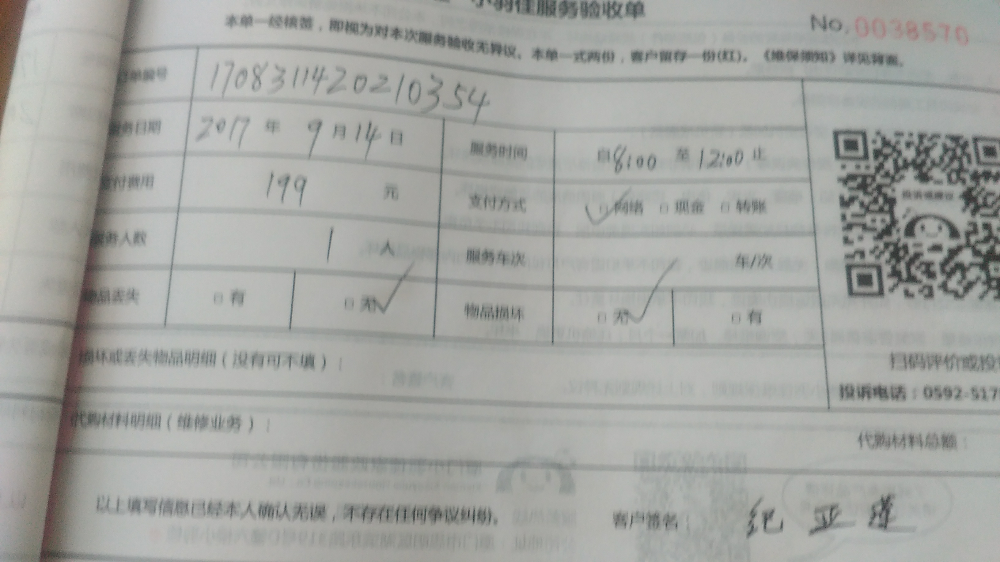 小羽佳服务验收单
No. 0038570
本单一经核签，即视为对本次服务验收无异议。本单一式两份，客户留存一份(红)。《维保须知》详见背面。
单编号 1708311420210354
服务日期 2017 年 9 月 14 日 服务时间 自 8:00 至 12:00 止
支付费用 199 元 支付方式 网络 现金 转账
服务人数 1 人 服务车次 车/次
物品丢失 有 无 物品损坏 无 有
损坏或丢失物品明细（没有可不填）：
扫码评价或投
投诉电话：0592-517
代购材料明细（维修业务）：
代购材料总额：
以上填写信息已经本人确认无误，不存在任何争议纠纷。
客户签名： 纪亚莲